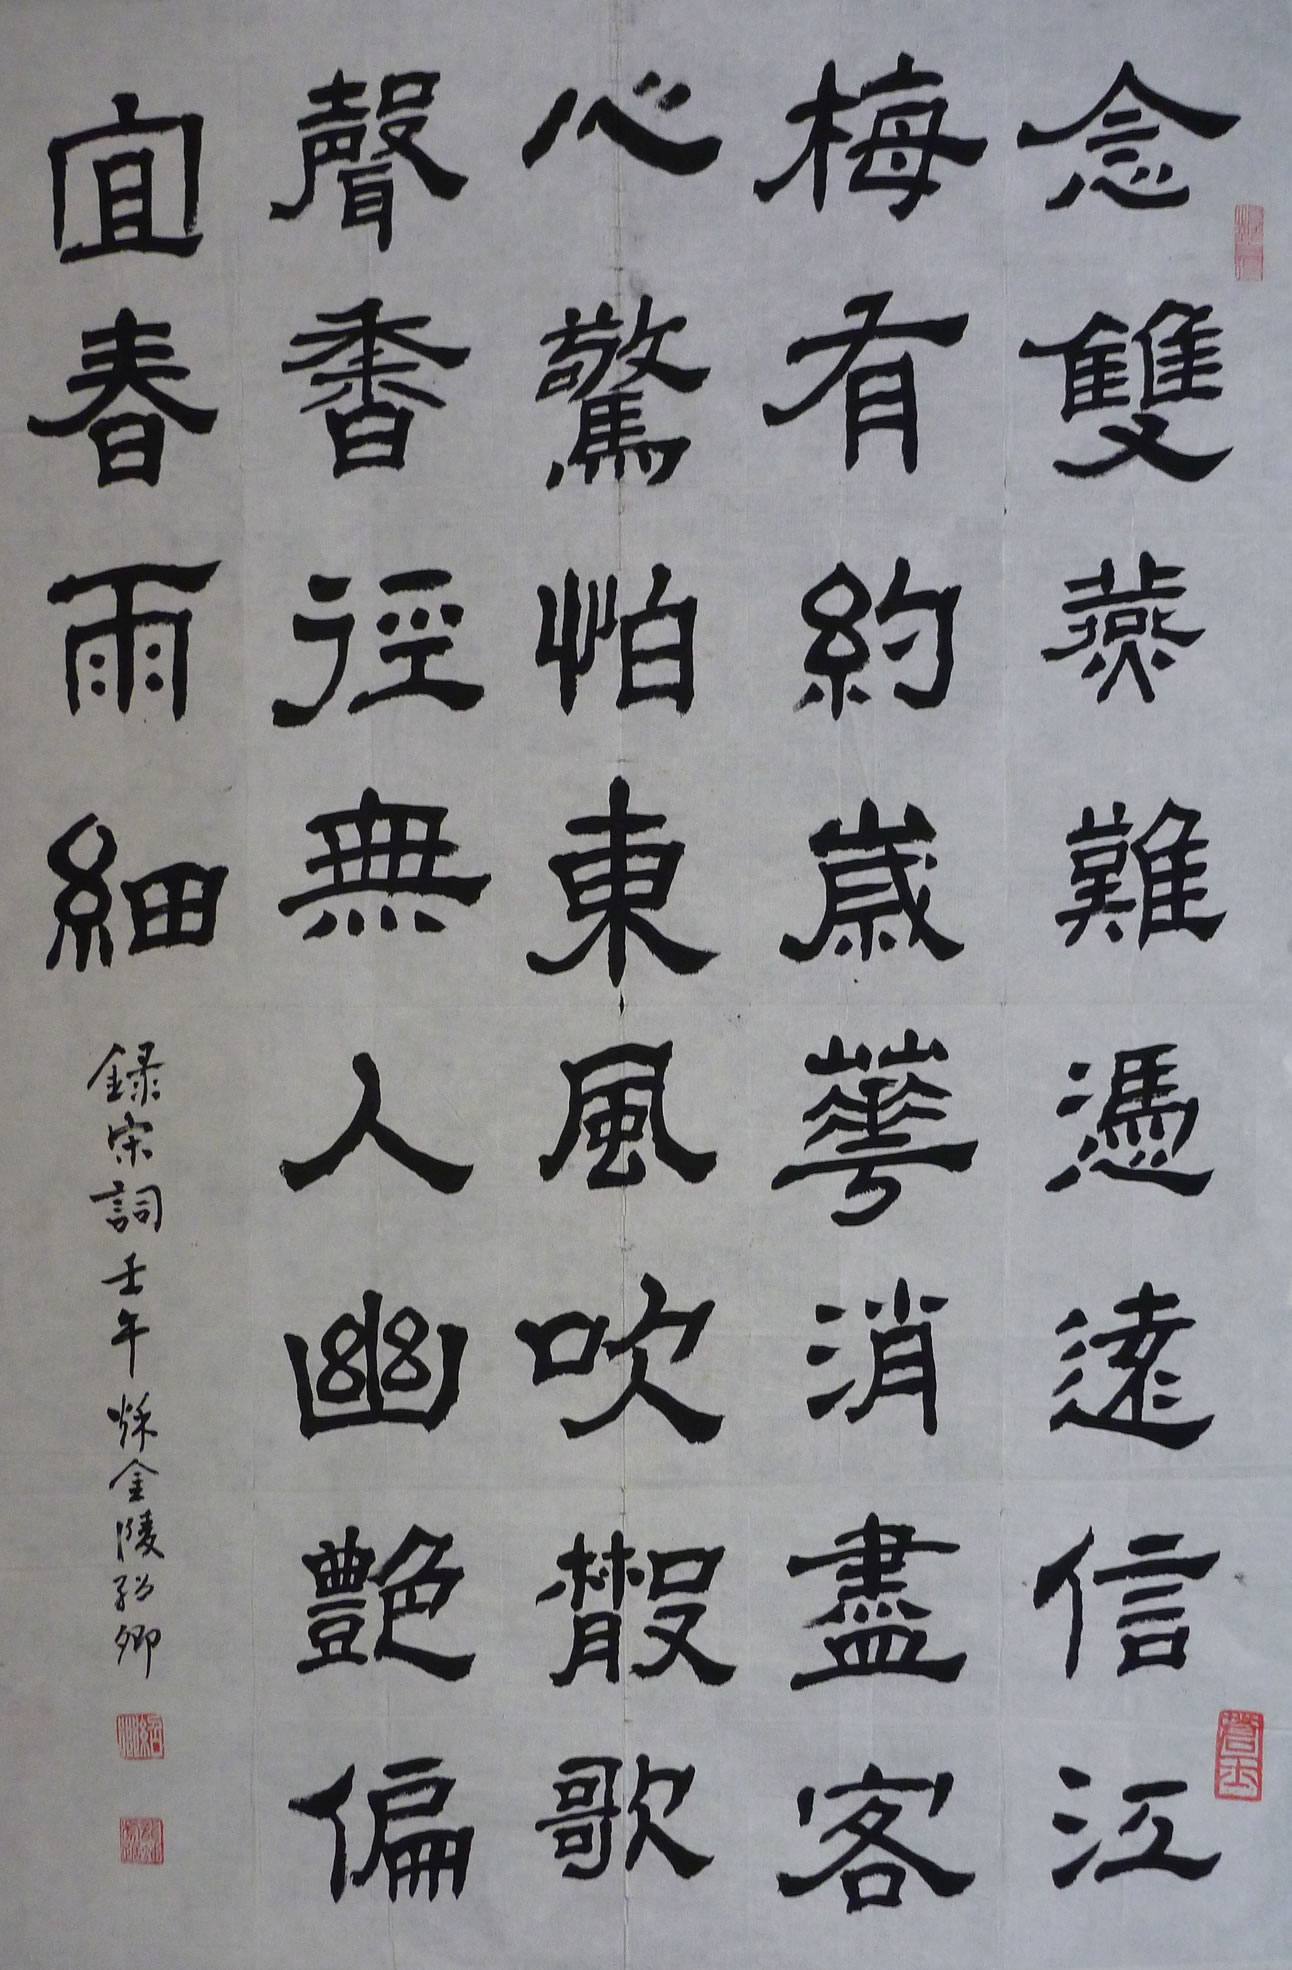 念雙燕難憑遠信江
梅有約歲華消盡客
心驚怕東風吹散歌
聲香徑無人幽艷偏
宜春雨細
録宋詞壬午秌金陵紹卿